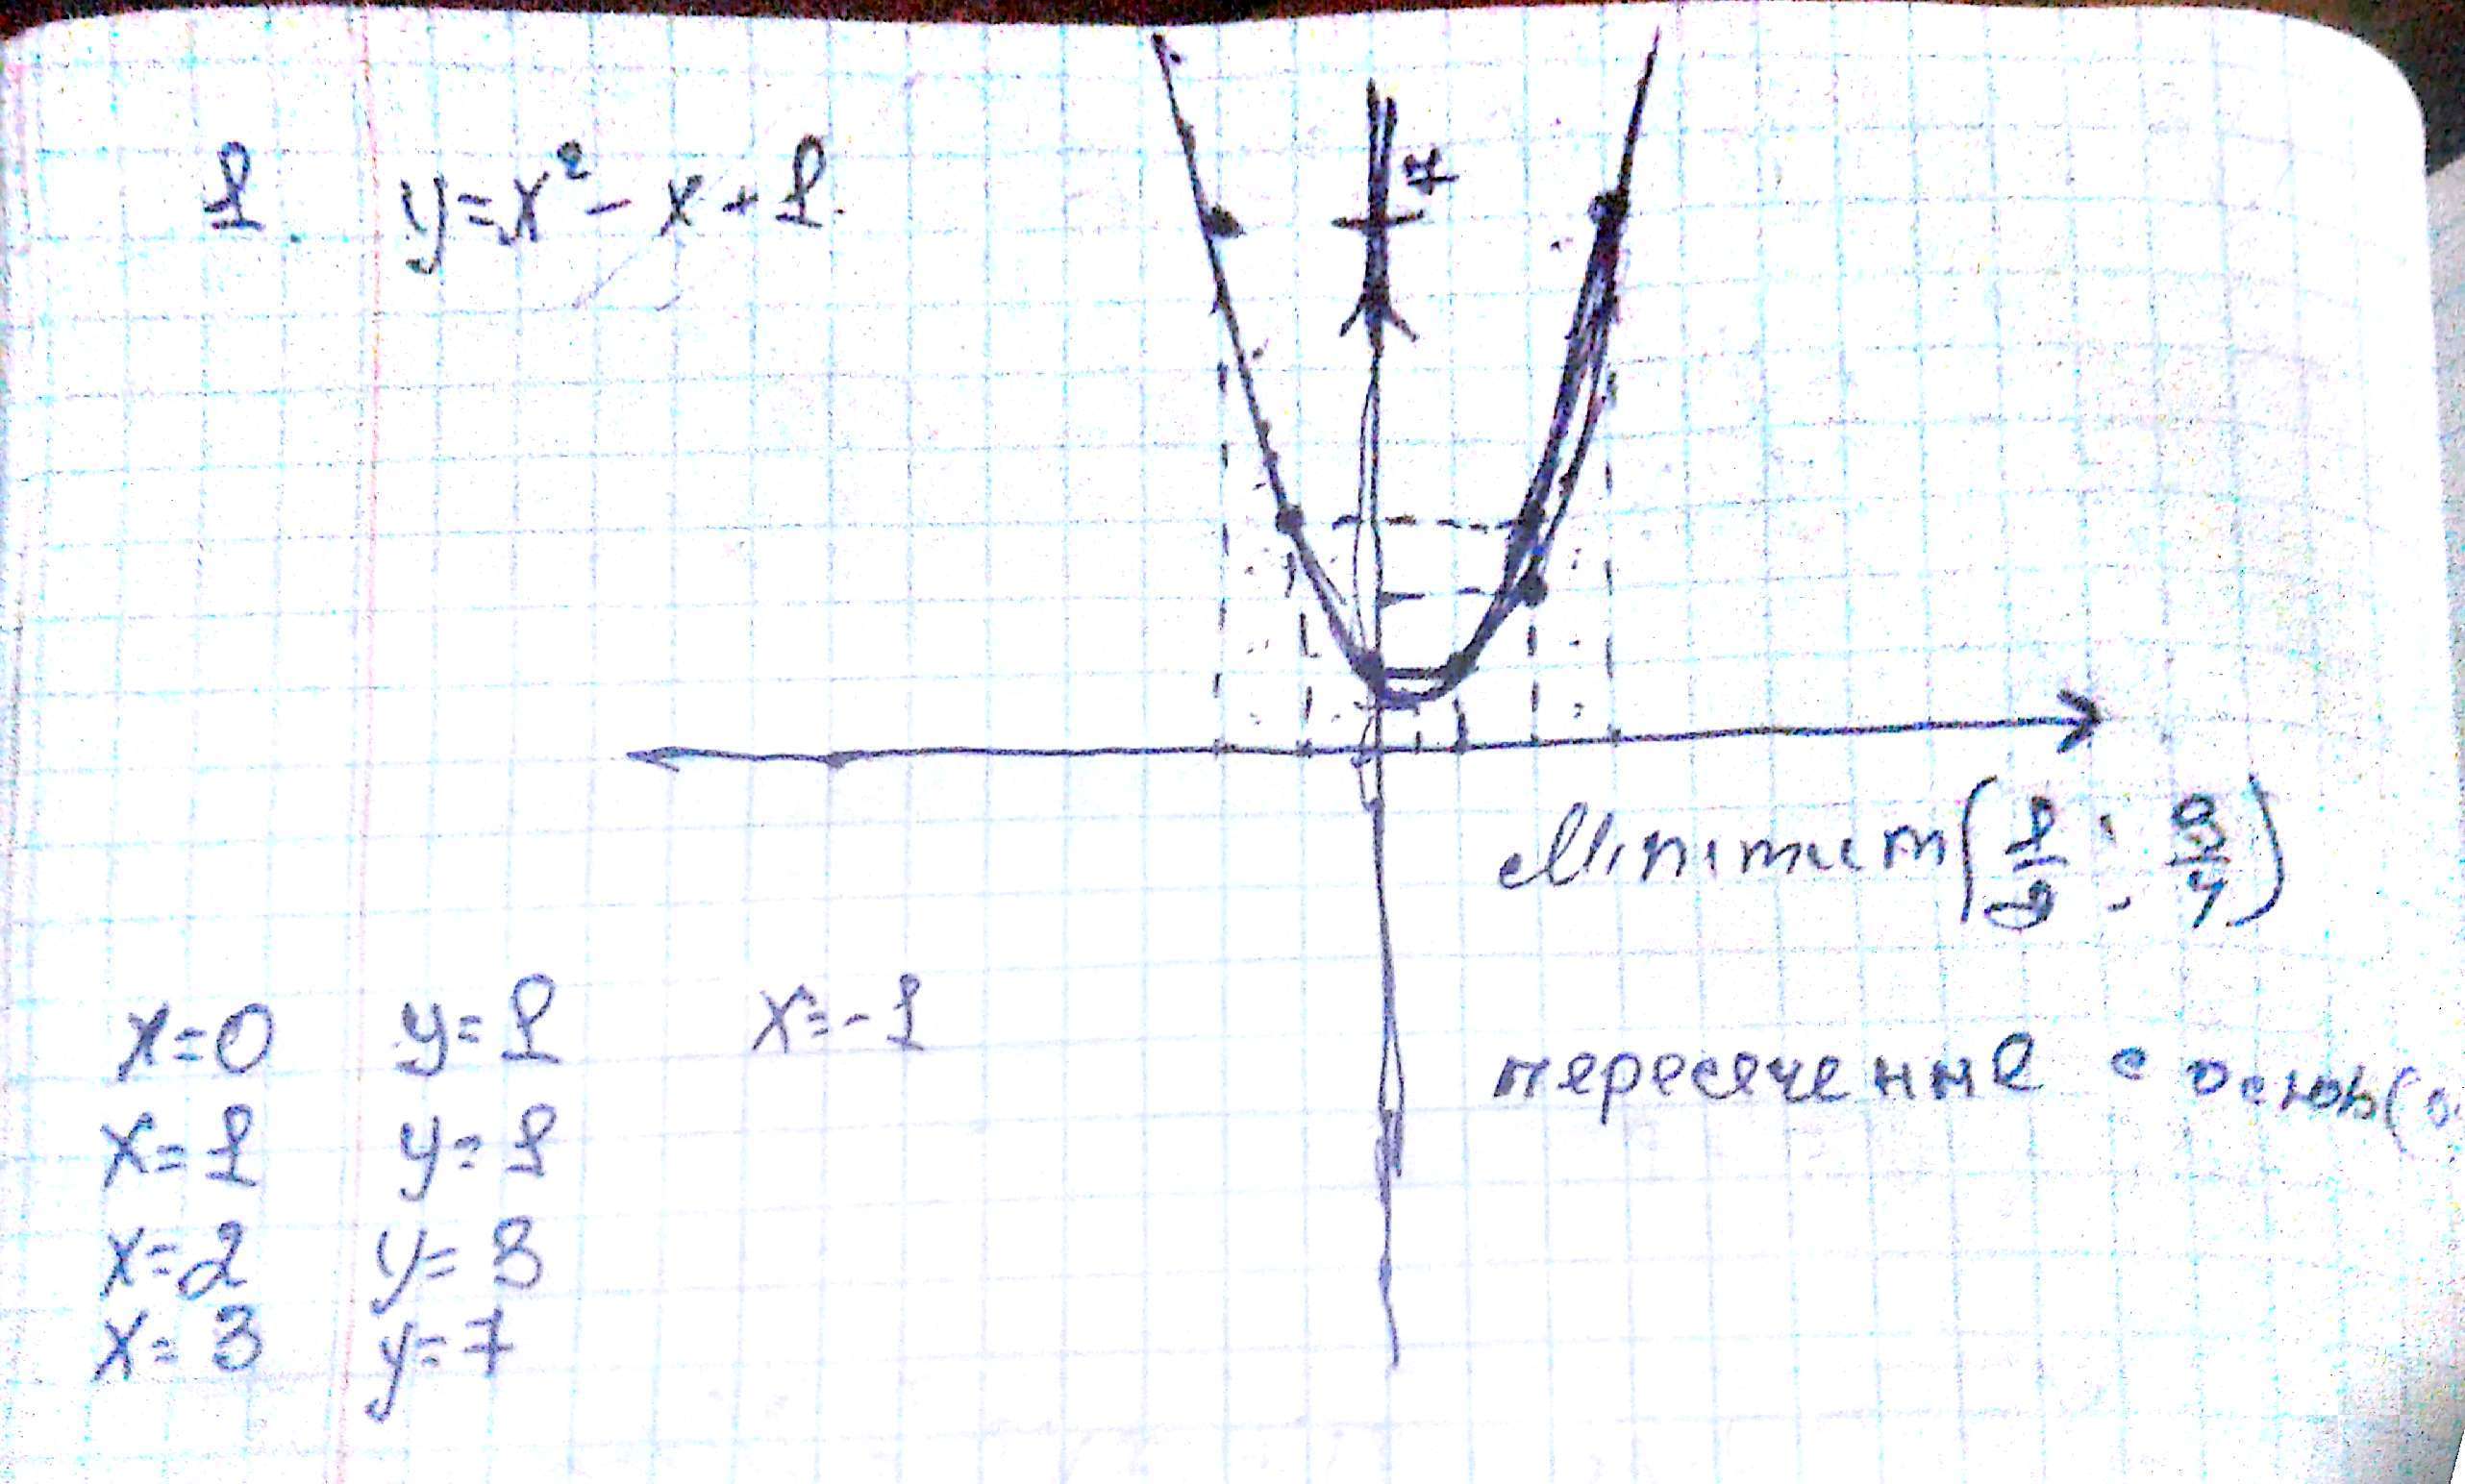 1. y=x²-x+1.
7
Minimum(1/2; 3/4)
x=0 y=1 x=-1
пересечение с осью
x=1 y=1
x=2 y=3
x=3 y=7